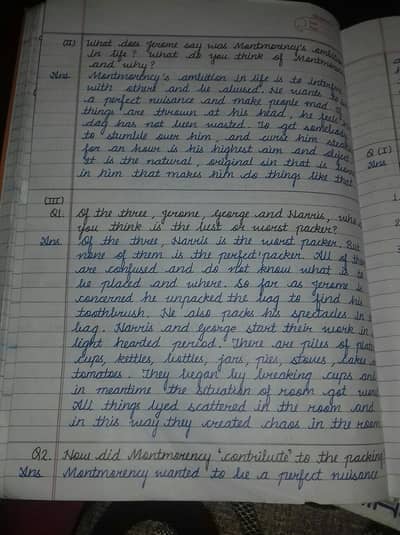 (II) What does Jerome say was Montmorency's ambition
in life? What do you think of Montmorency
and why?
Ans Montmorency's ambition in life is to interfere
with others and be abused. He wants to be
a perfect nuisance and make people mad
things are thrown at his head, he feels his
day has not been wasted. To get somebody
to stumble over him, and curse him steadily
for an hour is his highest aim and object
It is the natural, original sin that is born
in him that makes him do things like that
(III)
Q1. Of the three, Jerome, George and Harris, who do
you think is the best or worst packer?
Ans. Of the three, Harris is the worst packer. But
none of them is the perfect packer. All of them
are confused and do not know what is to
be placed and where. So far as Jerome is
concerned he unpacked the bag to find his
toothbrush. He also packs his spectacles in the
bag. Harris and George start their work in
light hearted period. There are piles of plates
cups, kettles, bottles, jars, pies, stoves, cakes
tomatoes. They began by breaking cups and
in meantime the situation of room got worse
All things lyed scattered in the room and
in this way they created chaos in the room
Q2. How did Montmorency 'contribute' to the packing
Ans Montmorency wanted to be a perfect nuisance
Q (I)
Ans